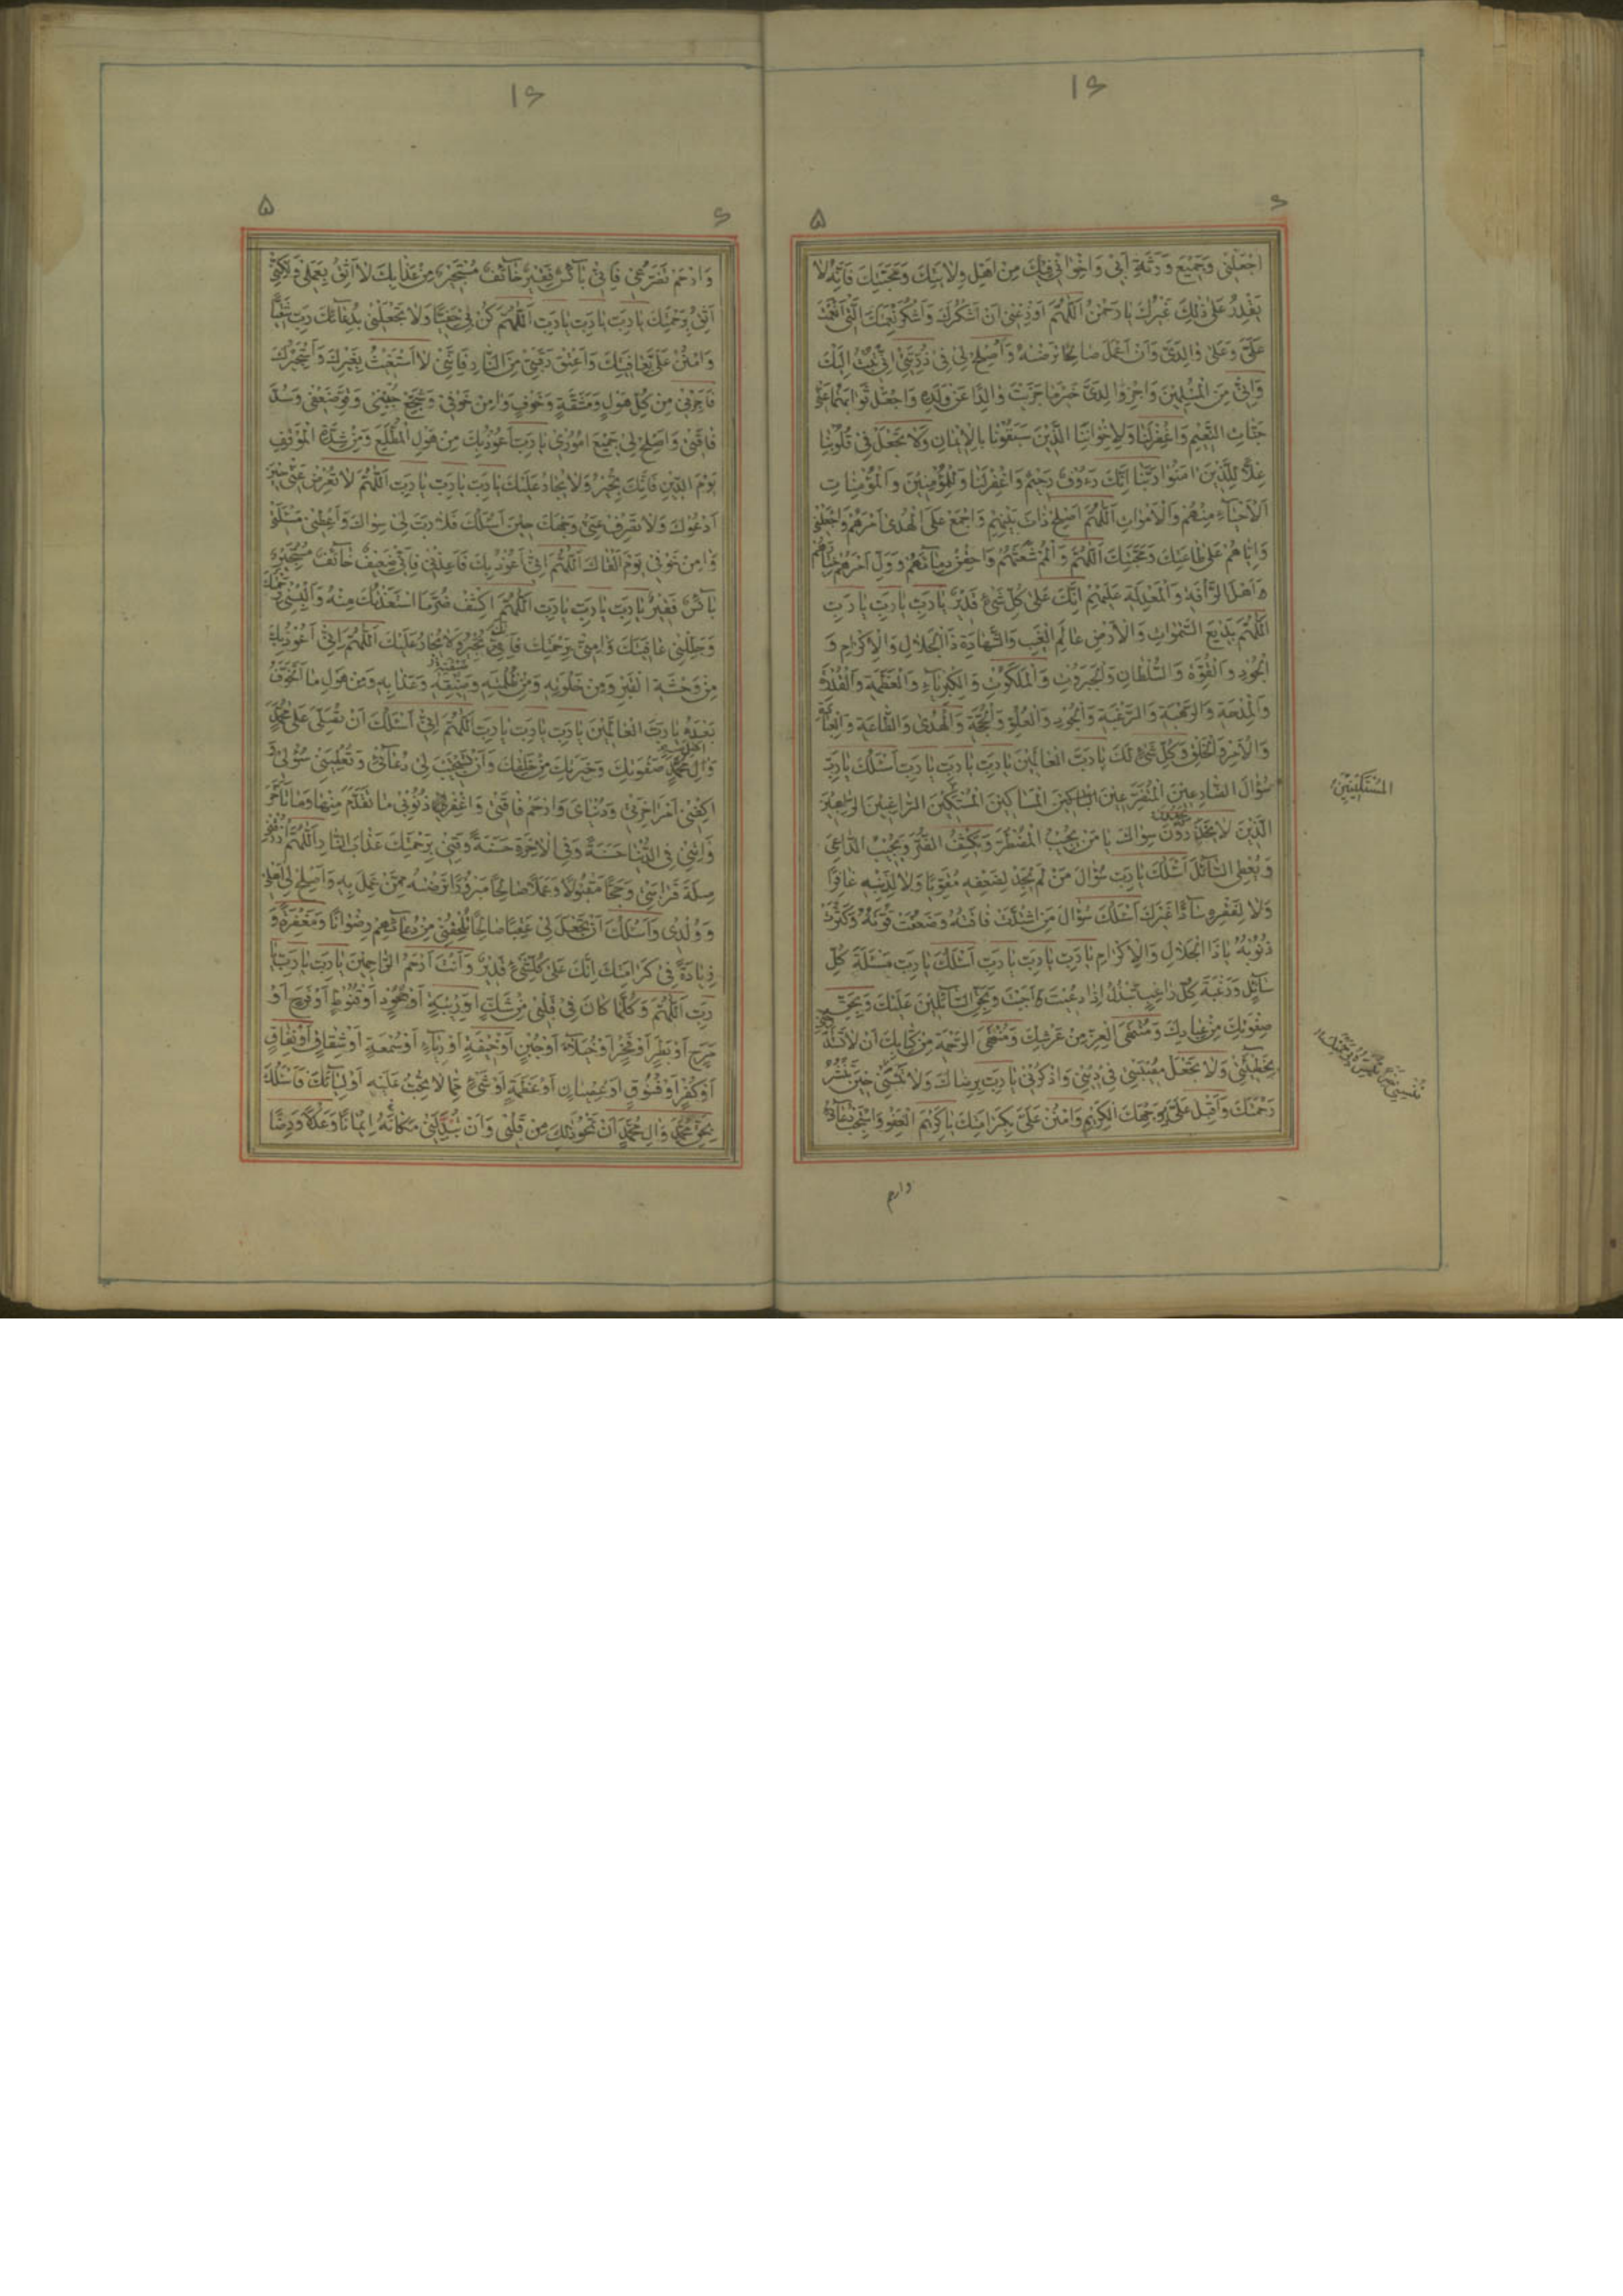 ۱۶
۶
۵
اجْعَلْنی وَجَمیعَ وَرَثَةِ اَبی وَاِخْوانی فیكَ مِنْ اَهْلِ وِلایَتِكَ وَمَحَبَّتِكَ فَاِنَّهُ لا
یَقْدِرُ عَلی ذٰلِكَ غَیْرُكَ یا رَحْمٰنُ اَللّٰهُمَّ اَوْزِعْنی اَنْ اَشْكُرَكَ وَاَشْكُرَ نِعْمَتَكَ الَّتی اَنْعَمْتَ
عَلَیَّ وَعَلی والِدَیَّ وَاَنْ اَعْمَلَ صالِحًا تَرْضٰهُ وَاَصْلِحْ لی فی ذُرِّیَّتی اِنّی تُبْتُ اِلَیْكَ
وَاِنّی مِنَ الْمُسْلِمینَ وَاجْزِ والِدَیَّ خَیْرَ ما جَزَیْتَ والِدًا عَنْ وَلَدِهِ وَاجْعَلْ ثَوابَهُما عَنّی
جَنّاتِ النَّعیمِ وَاغْفِرْ لَنا وَلِاِخْوانِنَا الَّذینَ سَبَقُونا بِالْایمانِ وَلا تَجْعَلْ فی قُلُوبِنا
غِلًّا لِلَّذینَ امَنُوا رَبَّنا اِنَّكَ رَءُوفٌ رَحیمٌ وَاغْفِرْ لَنا وَلِلْمُؤْمِنینَ وَالْمُؤْمِناتِ
اَلْاَحْیاءِ مِنْهُمْ وَالْاَمْواتِ اَللّٰهُمَّ اَصْلِحْ ذاتَ بَیْنِهِمْ وَاجْمَعْ عَلَی الْهُدی اَمْرَهُمْ وَاجْعَلْنی
وَاِیّاهُمْ عَلی طاعَتِكَ وَمَحَبَّتِكَ اَللّٰهُمَّ وَالْمُمْ شَعْثَهُمْ وَاحْقِنْ دِمائَهُمْ وَوَلِّ اَمْرَهُمْ خِیارَهُمْ
وَاَهْلَ الرَّأْفَةِ وَالْمَعْدِلَةِ عَلَیْهِمْ اِنَّكَ عَلی كُلِّ شَیْءٍ قَدیرٌ یا رَبِّ یا رَبِّ یا رَبِّ
اَللّٰهُمَّ بَدیعَ السَّمٰواتِ وَالْاَرْضِ عالِمَ الْغَیْبِ وَالشَّهادَةِ ذَا الْجَلالِ وَالْاِكْرامِ وَ
الْجُودِ وَالْقُوَّةِ وَالسُّلْطانِ وَالْجَبَرُوتِ وَالْمَلَكُوتِ وَالْكِبْرِیاءِ وَالْعَظَمَةِ وَالْقُدْرَةِ
وَالْمِدْحَةِ وَالرَّهْبَةِ وَالرَّغْبَةِ وَالْجُودِ وَالْعُلُوِّ وَالْحُجَّةِ وَالْهُدی وَالطّاعَةِ وَالْعِبادَةِ
وَالْاَمْرِ وَالْخَلْقِ وَكُلُّ شَیْءٍ لَكَ یا رَبَّ الْعالَمینَ یا رَبِّ یا رَبِّ یا رَبِّ اَسْئَلُكَ یا رَبِّ
سُؤالَ الضّارِعینَ الْمُتَضَرِّعینَ الْمَساكینَ الْمُسْتَكینَ الرّاغِبینَ
الَّذینَ لا یَجِدُونَ سِواكَ یا مَنْ یُجیبُ الْمُضْطَرَّ وَیَكْشِفُ الضُّرَّ وَیُجیبُ الدّاعِیَ
وَیُعْطِی السّائِلَ اَسْئَلُكَ یا رَبِّ سُؤالَ مَنْ لَمْ یَجِدْ لِضَعْفِهِ مُقَوِّیًا وَلا لِذَنْبِهِ غافِرًا
وَلا لِفَقْرِهِ سادًّا غَیْرَكَ اَسْئَلُكَ سُؤالَ مَنِ اشْتَدَّتْ فاقَتُهُ وَضَعُفَتْ قُوَّتُهُ وَكَثُرَتْ
ذُنُوبُهُ یا ذَا الْجَلالِ وَالْاِكْرامِ یا رَبِّ یا رَبِّ یا رَبِّ اَسْئَلُكَ یا رَبِّ مَسْئَلَةَ كُلِّ
سائِلٍ وَرَغْبَةَ كُلِّ راغِبٍ بِیَدِكَ اِذا دُعیتَ اَجَبْتَ وَبِحَقِّ السّائِلینَ عَلَیْكَ وَبِحَقِّ
صِفْوَتِكَ مِنْ عِبادِكَ وَمُنْتَهَی الْعِزِّ مِنْ عَرْشِكَ وَمُنْتَهَی الرَّحْمَةِ مِنْ كِتابِكَ اَنْ لا
بِخَطیئَتی وَلا تَجْعَلْ مُصیبَتی فی دینی وَاذْكُرْنی یا رَبِّ بِرِضاكَ وَلا تَنْسَنی حینَ تَنْشُرُ
رَحْمَتَكَ وَاَقْبِلْ عَلَیَّ بِوَجْهِكَ الْكَریمِ وَامْنُنْ عَلَیَّ بِكَرامَتِكَ یا كَریمَ الْعَفْوِ وَاسْتَجِبْ دُعائی
الْمُسْتَكینینَ
وارحم
۱۶
۶
۵
وَارْحَمْ تَضَرُّعی فَاِنّی بائِسٌ فَقیرٌ خائِفٌ مُسْتَجیرٌ مِنْ عَذابِكَ لا اَثِقُ بِعَمَلی وَلكِنّی
اَثِقُ بِرَحْمَتِكَ یا رَبِّ یا رَبِّ یا رَبِّ اَللّٰهُمَّ كُنْ لی حَفِیًّا وَلا تَجْعَلْنی بِدُعائِكَ رَبِّ شَقِیًّا
وَامْنُنْ عَلَیَّ بِعافِیَتِكَ وَاَعْتِقْ رَقَبَتی مِنَ النّارِ فَاِنَّنی لا اَسْتَغیثُ بِغَیْرِكَ وَاَسْتَجیرُكَ
فَاَجِرْنی مِنْ كُلِّ هَوْلٍ وَمَشَقَّةٍ وَخَوْفٍ وَامِنْ خَوْفی وَشَجِّعْ جُبْنی وَقَوِّ ضَعْفی وَسُدَّ
فاقَتی وَاَصْلِحْ لی جَمیعَ اُمُوری یا رَبِّ اَعُوذُ بِكَ مِنْ هَوْلِ الْمُطَّلَعِ وَمِنْ شِدَّةِ الْمَوْقِفِ
یَوْمَ الدّینِ فَاِنَّكَ تُجیرُ وَلا یُجارُ عَلَیْكَ یا رَبِّ یا رَبِّ یا رَبِّ اَللّٰهُمَّ لا تُعْرِضْ عَنّی حینَ
اَدْعُوكَ وَلا تَصْرِفْ عَنّی وَجْهَكَ حینَ اَسْئَلُكَ فَلا رَبَّ لی سِواكَ وَاَعْطِنی مَسْئَلَتی
وَامِنْ خَوْفی یَوْمَ اَلْقاكَ اَللّٰهُمَّ اِنّی اَعُوذُ بِكَ فَاَعِذْنی فَاِنّی ضَعیفٌ خائِفٌ مُسْتَجیرٌ
بائِسٌ فَقیرٌ یا رَبِّ یا رَبِّ یا رَبِّ اَللّٰهُمَّ اكْشِفْ ضُرَّ مَا اسْتَعَذْتُكَ مِنْهُ وَاَلْبِسْنی رَحْمَتَكَ
وَجَلِّلْنی عافِیَتَكَ وَامِنّی بِرَحْمَتِكَ فَاِنَّكَ تُجیرُ وَلا یُجارُ عَلَیْكَ اَللّٰهُمَّ اِنّی اَعُوذُ بِكَ
مِنْ وَحْشَةِ الْقَبْرِ وَمِنْ خَلْوَتِهِ وَمِنْ ظُلْمَتِهِ وَضیقِهِ وَعَذابِهِ وَمِنْ هَوْلِ ما اَتَخَوَّفُ
بَعْدَهُ یا رَبَّ الْعالَمینَ یا رَبِّ یا رَبِّ یا رَبِّ اَللّٰهُمَّ اِنّی اَسْئَلُكَ اَنْ تُصَلِّیَ عَلی مُحَمَّدٍ
وَالِ مُحَمَّدٍ صَفْوَتِكَ وَخِیَرَتِكَ مِنْ خَلْقِكَ وَاَنْ تَسْتَجیبَ لی دُعائی وَتُعْطِیَنی سُؤْلی وَ
اكْفِنی اَمْرَ اخِرَتی وَدُنْیایَ وَارْحَمْ فاقَتی وَاغْفِرْ لی ذُنُوبی ما تَقَدَّمَ مِنْها وَما تَاَخَّرَ
وَاتِنی فِی الدُّنْیا حَسَنَةً وَفِی الْاخِرَةِ حَسَنَةً وَقِنی بِرَحْمَتِكَ عَذابَ النّارِ اَللّٰهُمَّ ارْزُقْنی
صِلَةَ قَرابَتی وَحَجًّا مَقْبُولًا وَعَمَلًا صالِحًا مَبْرُورًا تَرْضٰهُ مِمَّنْ عَمِلَ بِهِ وَاَصْلِحْ لی اَهْلی
وَوُلْدی وَاَسْئَلُكَ اَنْ تَجْعَلَ لی عَقِبًا صالِحًا تُلْحِقُنی مِنْ دُعائِهِمْ رِضْوانًا وَمَغْفِرَةً وَ
زِیادَةً فی كَرامَتِكَ اِنَّكَ عَلی كُلِّ شَیْءٍ قَدیرٌ وَاَنْتَ اَرْحَمُ الرّاحِمینَ یا رَبِّ یا رَبِّ یا
رَبِّ اَللّٰهُمَّ وَكُلَّما كانَ فی قَلْبی مِنْ شَكٍّ اَوْ رَیْبَةٍ اَوْ جُحُودٍ اَوْ قُنُوطٍ اَوْ فَرَحٍ اَوْ
مَرَحٍ اَوْ بَطَرٍ اَوْ فَخْرٍ اَوْ خُیَلاءَ اَوْ جُبْنٍ اَوْ خیفَةٍ اَوْ رِیاءٍ اَوْ سُمْعَةٍ اَوْ شِقاقٍ اَوْ نِفاقٍ
اَوْ كُفْرٍ اَوْ فُسُوقٍ اَوْ عِصْیانٍ اَوْ عَظَمَةٍ اَوْ شَیْءٍ مِمّا لا تُحِبُّ عَلَیْهِ اَوْلِیائَكَ فَاَسْئَلُكَ
بِحَقِّ مُحَمَّدٍ وَالِ مُحَمَّدٍ اَنْ تَمْحُوَ ذٰلِكَ مِنْ قَلْبی وَاَنْ تُبَدِّلَنی مَكانَهُ ایمانًا وَعَدْلًا وَرِضًا